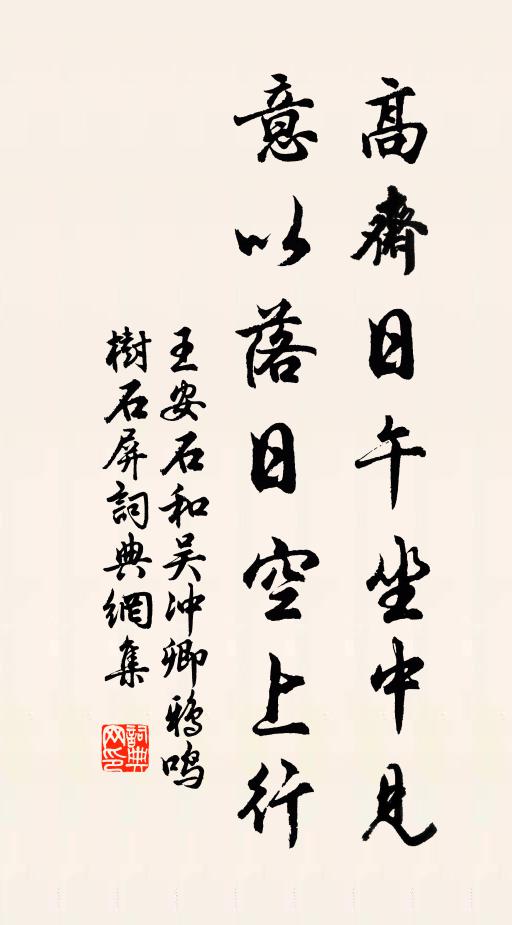 高齋日午坐中見
意以落日空上行
王安石和吴沖卿鴉鸣
樹石屏詞典網集
詞典
网印